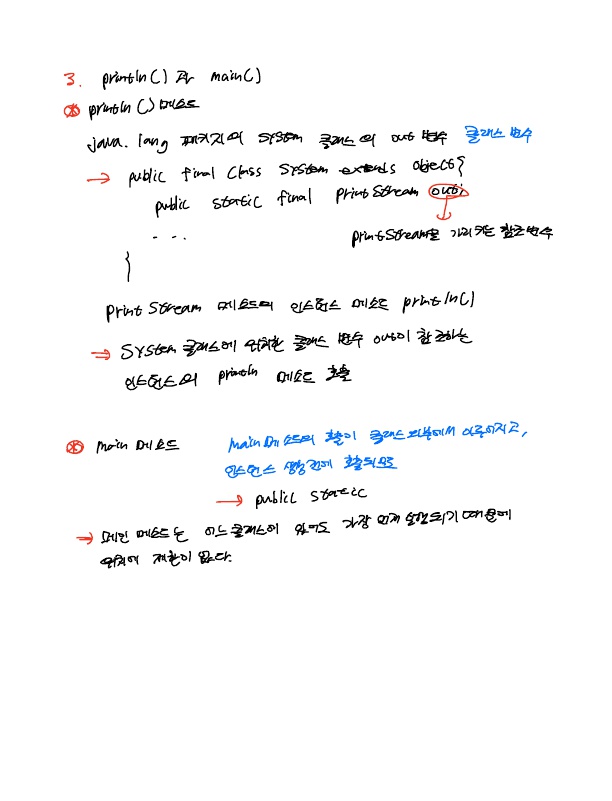 3. println() 과 main()
* println() 메소드
java.lang 패키지의 System 클래스의 out 변수 클래스 변수
→ public final class System extends Object{
public static final PrintStream out;
... printStream을 가리키는 참조변수
}
Print Stream 메소드의 인스턴스 메소드 println()
→ System 클래스에 위치한 클래스 변수 out이 참조하는
인스턴스의 println 메소드 호출
* main 메소드 main메소드의 호출이 클래스 외부에서 이루어지고,
인스턴스 생성 전에 호출되므로
→ public static
→ 메인 메소드는 어느 클래스에 있어도 가장 먼저 실행되기 때문에
위치에 제한이 없다.